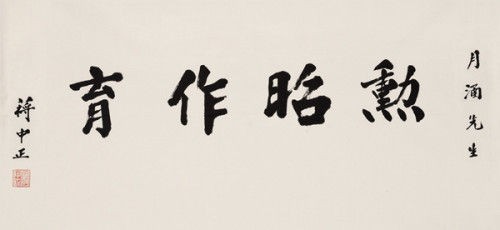 月涵先生
勳昭作育
蔣中正